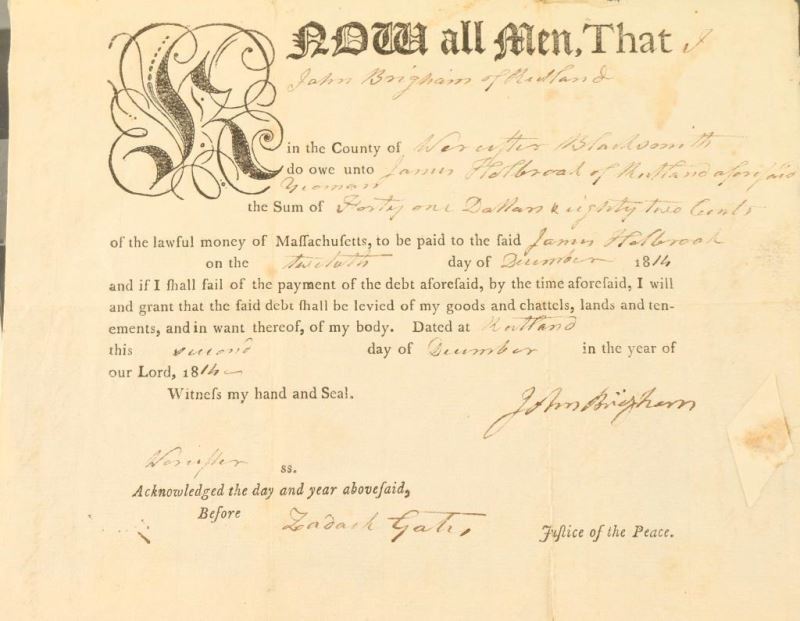 KNOW all Men, That I
John Brigham of Rutland
in the County of Worcester Blacksmith
do owe unto James Holbrook of Rutland aforesaid
Yeoman
the Sum of Forty one Dollars & eighty two Cents
of the lawful money of Maſſachuſetts, to be paid to the ſaid James Holbrook
on the twelfth day of December 1814
and if I ſhall fail of the payment of the debt aforeſaid, by the time aforeſaid, I will
and grant that the ſaid debt ſhall be levied of my goods and chattels, lands and ten-
ements, and in want thereof, of my body. Dated at Rutland
this second day of December in the year of
our Lord, 1814
Witneſs my hand and Seal.
John Brigham
Worcester ss.
Acknowledged the day and year aboveſaid,
Before Zadock Gates
Juſtice of the Peace.